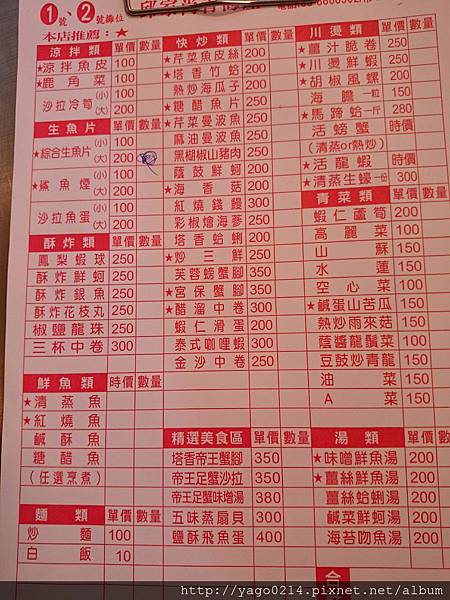 1號、2號攤位
本店推薦：★
涼拌類 單價 數量
★涼拌魚皮 100
★鹿角菜 100
沙拉冷筍 (小) 100
(大) 200
生魚片
★綜合生魚片 (小) 100
(大) 200
★鯊魚煙 (小) 100
(大) 200
沙拉魚蛋 (小) 100
(大) 200
酥炸類 單價 數量
鳳梨蝦球 250
酥炸鮮蚵 250
酥炸銀魚 250
酥炸花枝丸 250
椒鹽龍珠 250
三杯中卷 300
鮮魚類 時價 數量
★清蒸魚
★紅燒魚
鹹酥魚
糖醋魚
(任選烹煮)
麵類 單價 數量
炒麵 100
白飯 10
快炒類 單價 數量
★芹菜魚皮絲 200
★塔香竹蛤 200
熱炒海瓜子 200
★糖醋魚片 250
★芹菜曼波魚 250
麻油曼波魚 250
黑椒山豬肉 250
蔭鼓鮮蚵 200
★海香菇 200
紅燒錢鰻 300
彩椒燴海蔘 250
塔香蛤蜊 200
★炒三鮮 250
芙蓉螃蟹腳 350
★宮保蟹腳 350
★醋溜中卷 300
蝦仁滑蛋 200
泰式咖哩蝦 300
金沙中卷 250
精選美食區 單價 數量
塔香帝王蟹腳 350
帝王足蟹沙拉 350
帝王足蟹味增湯 380
五味蒸扇貝 300
鹽酥飛魚蛋 400
川燙類 單價 數量
★薑汁脆卷 250
★川燙鮮蝦 250
★胡椒風螺 200
海膽一粒 150
★馬蹄蛤一斤 280
活螃蟹 時價
(清蒸or熱炒)
★活龍蝦 時價
★清蒸生蠔一份 300
青菜類 單價 數量
蝦仁蘆筍 200
高麗菜 100
山蘇 150
水蓮 150
空心菜 100
★鹹蛋山苦瓜 150
熱炒雨來菇 150
蔭醬龍鬚菜 100
豆鼓炒青龍 150
油菜 150
A菜 150
湯類 單價 數量
★味噌鮮魚湯 200
★薑絲鮮魚湯 200
薑絲蛤蜊湯 200
鹹菜鮮蚵湯 200
海苔吻魚湯 200
http://yago0214.pixnet.net/album